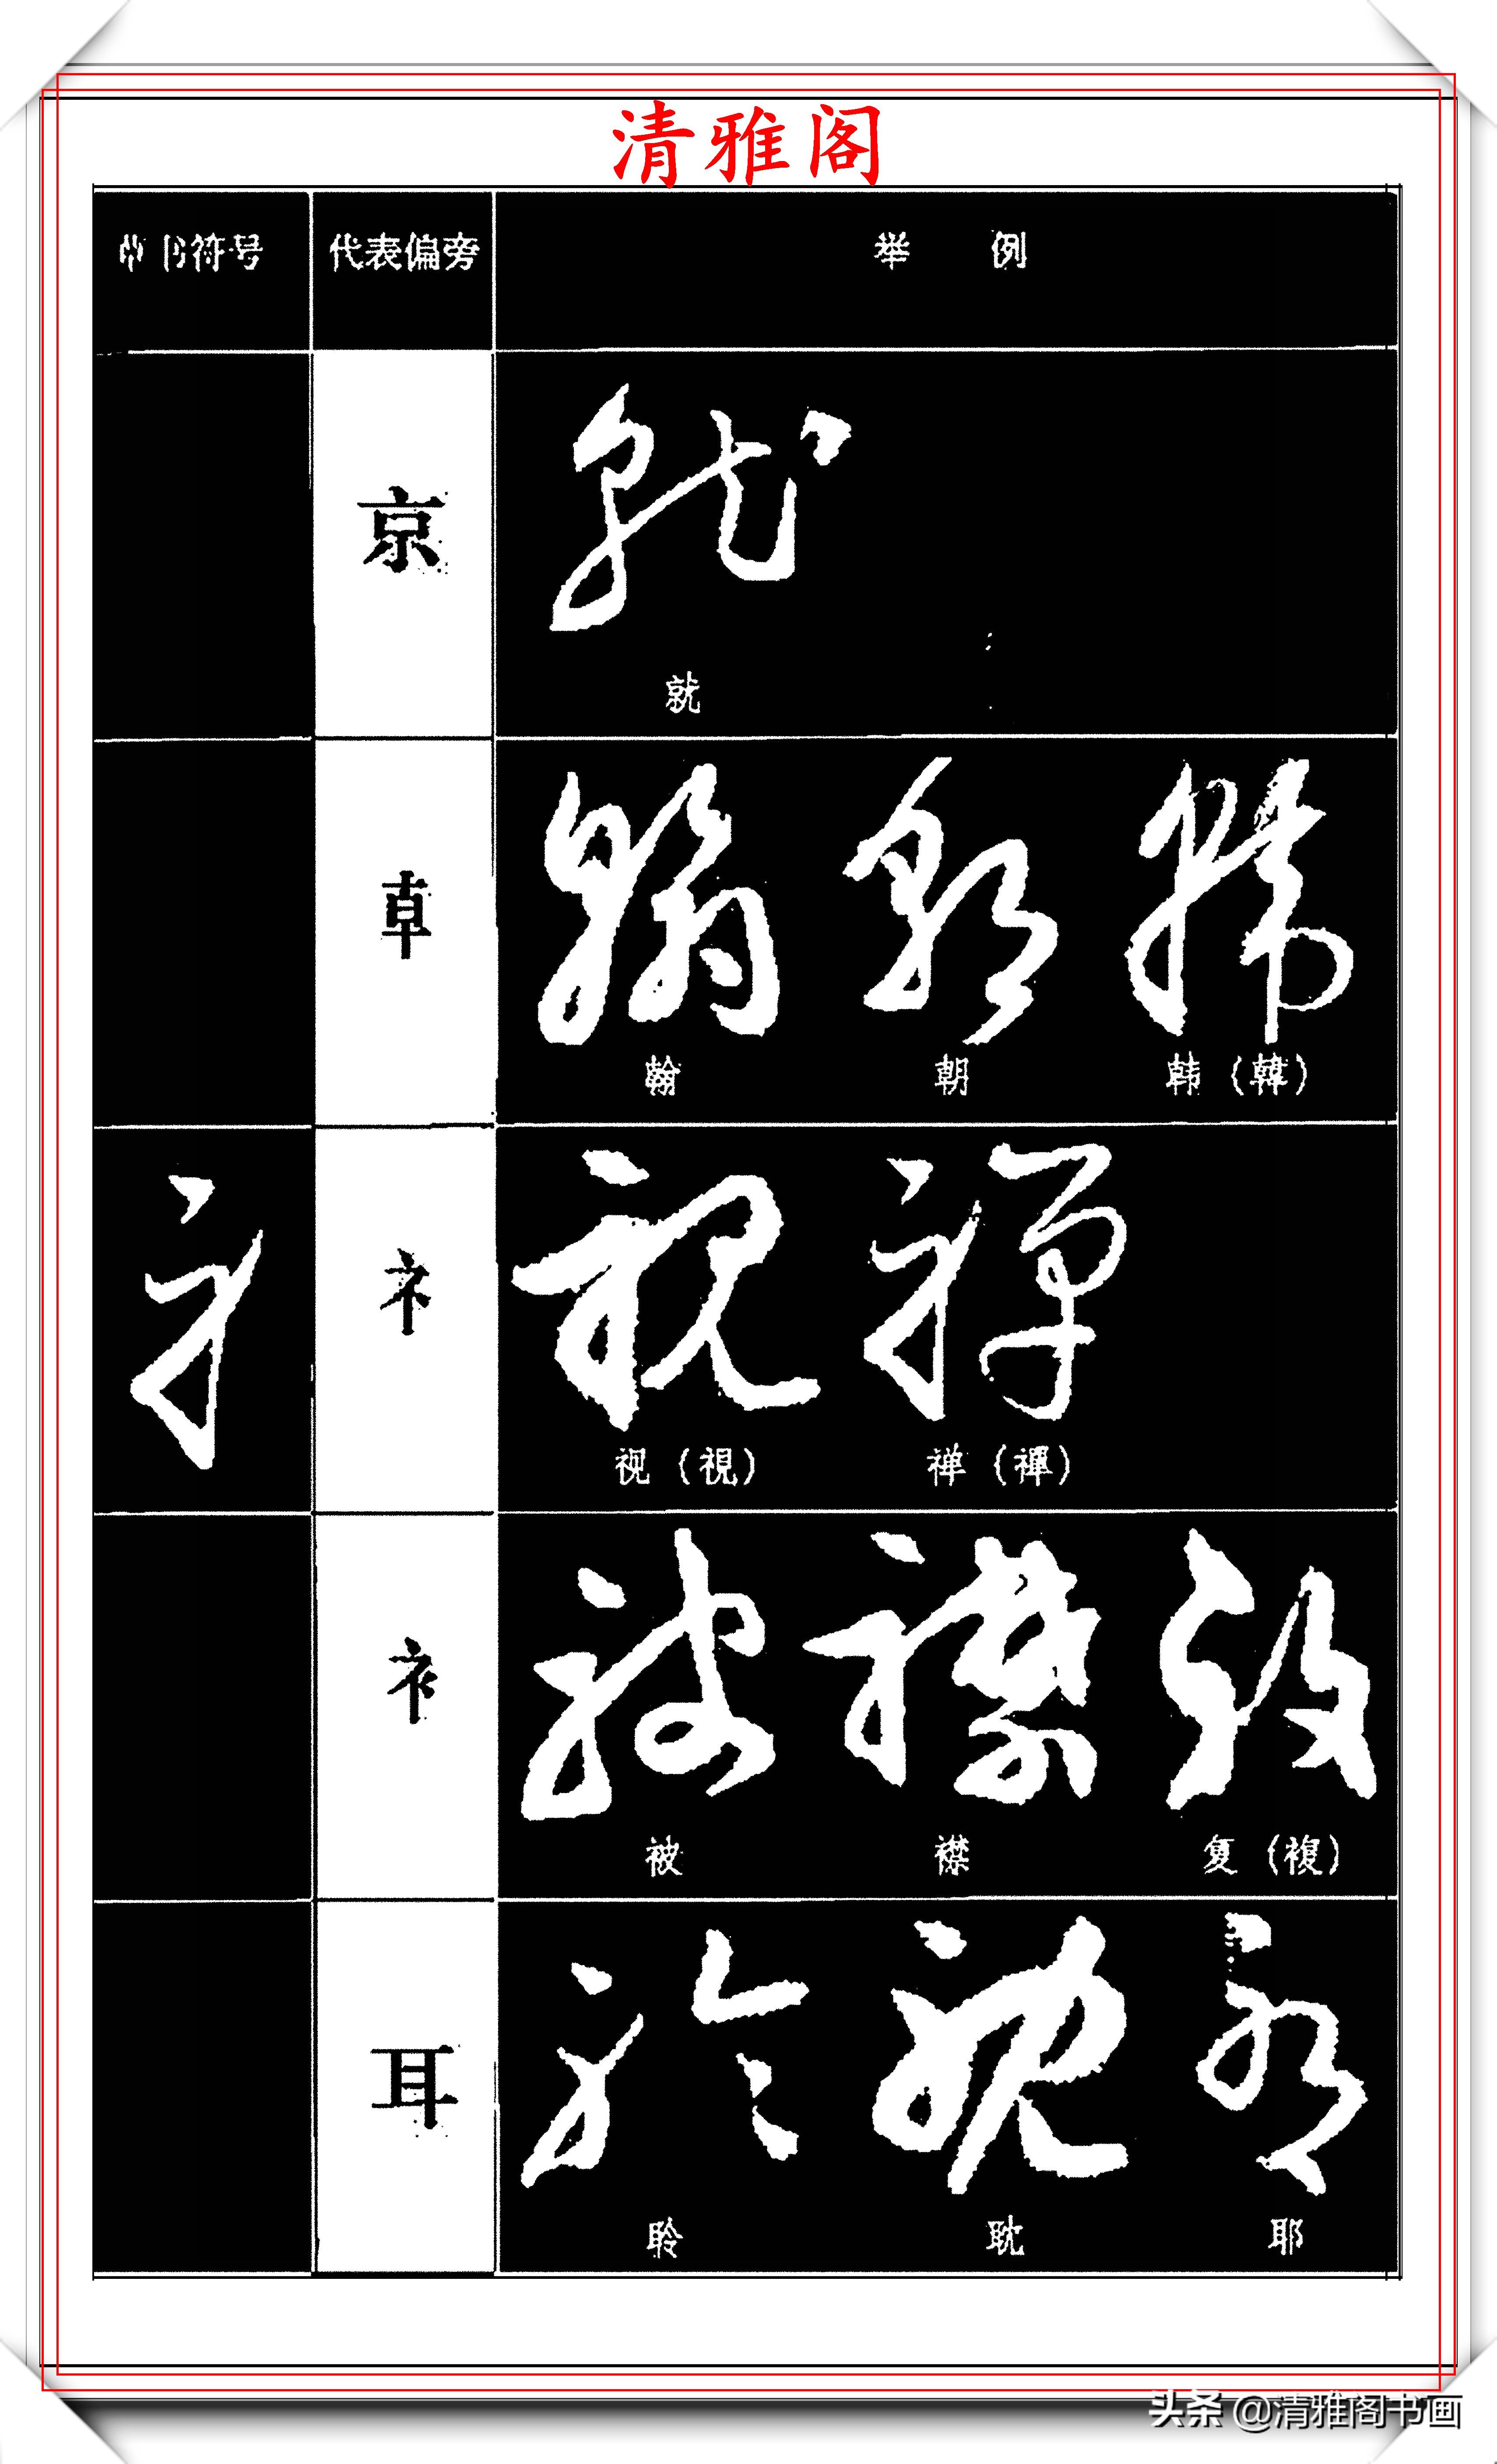 清雅阁
草书符号 代表偏旁 举 例
京
就
𠦝
翰 朝 韩（韓）
礻
视（視） 禅（禪）
衤
被 襟 复（複）
耳
聆 耽 耶
头条 @清雅阁书画